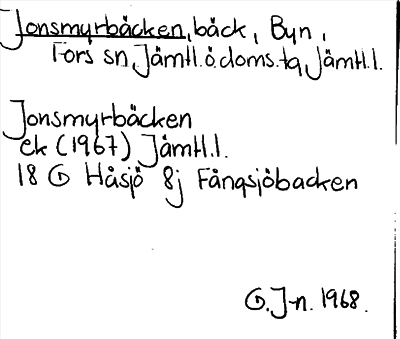 Jonsmyrbäcken, bäck, Byn,
Fors sn, Jämtl.ö.doms.tg, Jämtl.l.
Jonsmyrbäcken
ek (1967) Jämtl.l.
18 G Håsjö 8j Fångsjöbacken
G.J-n. 1968.